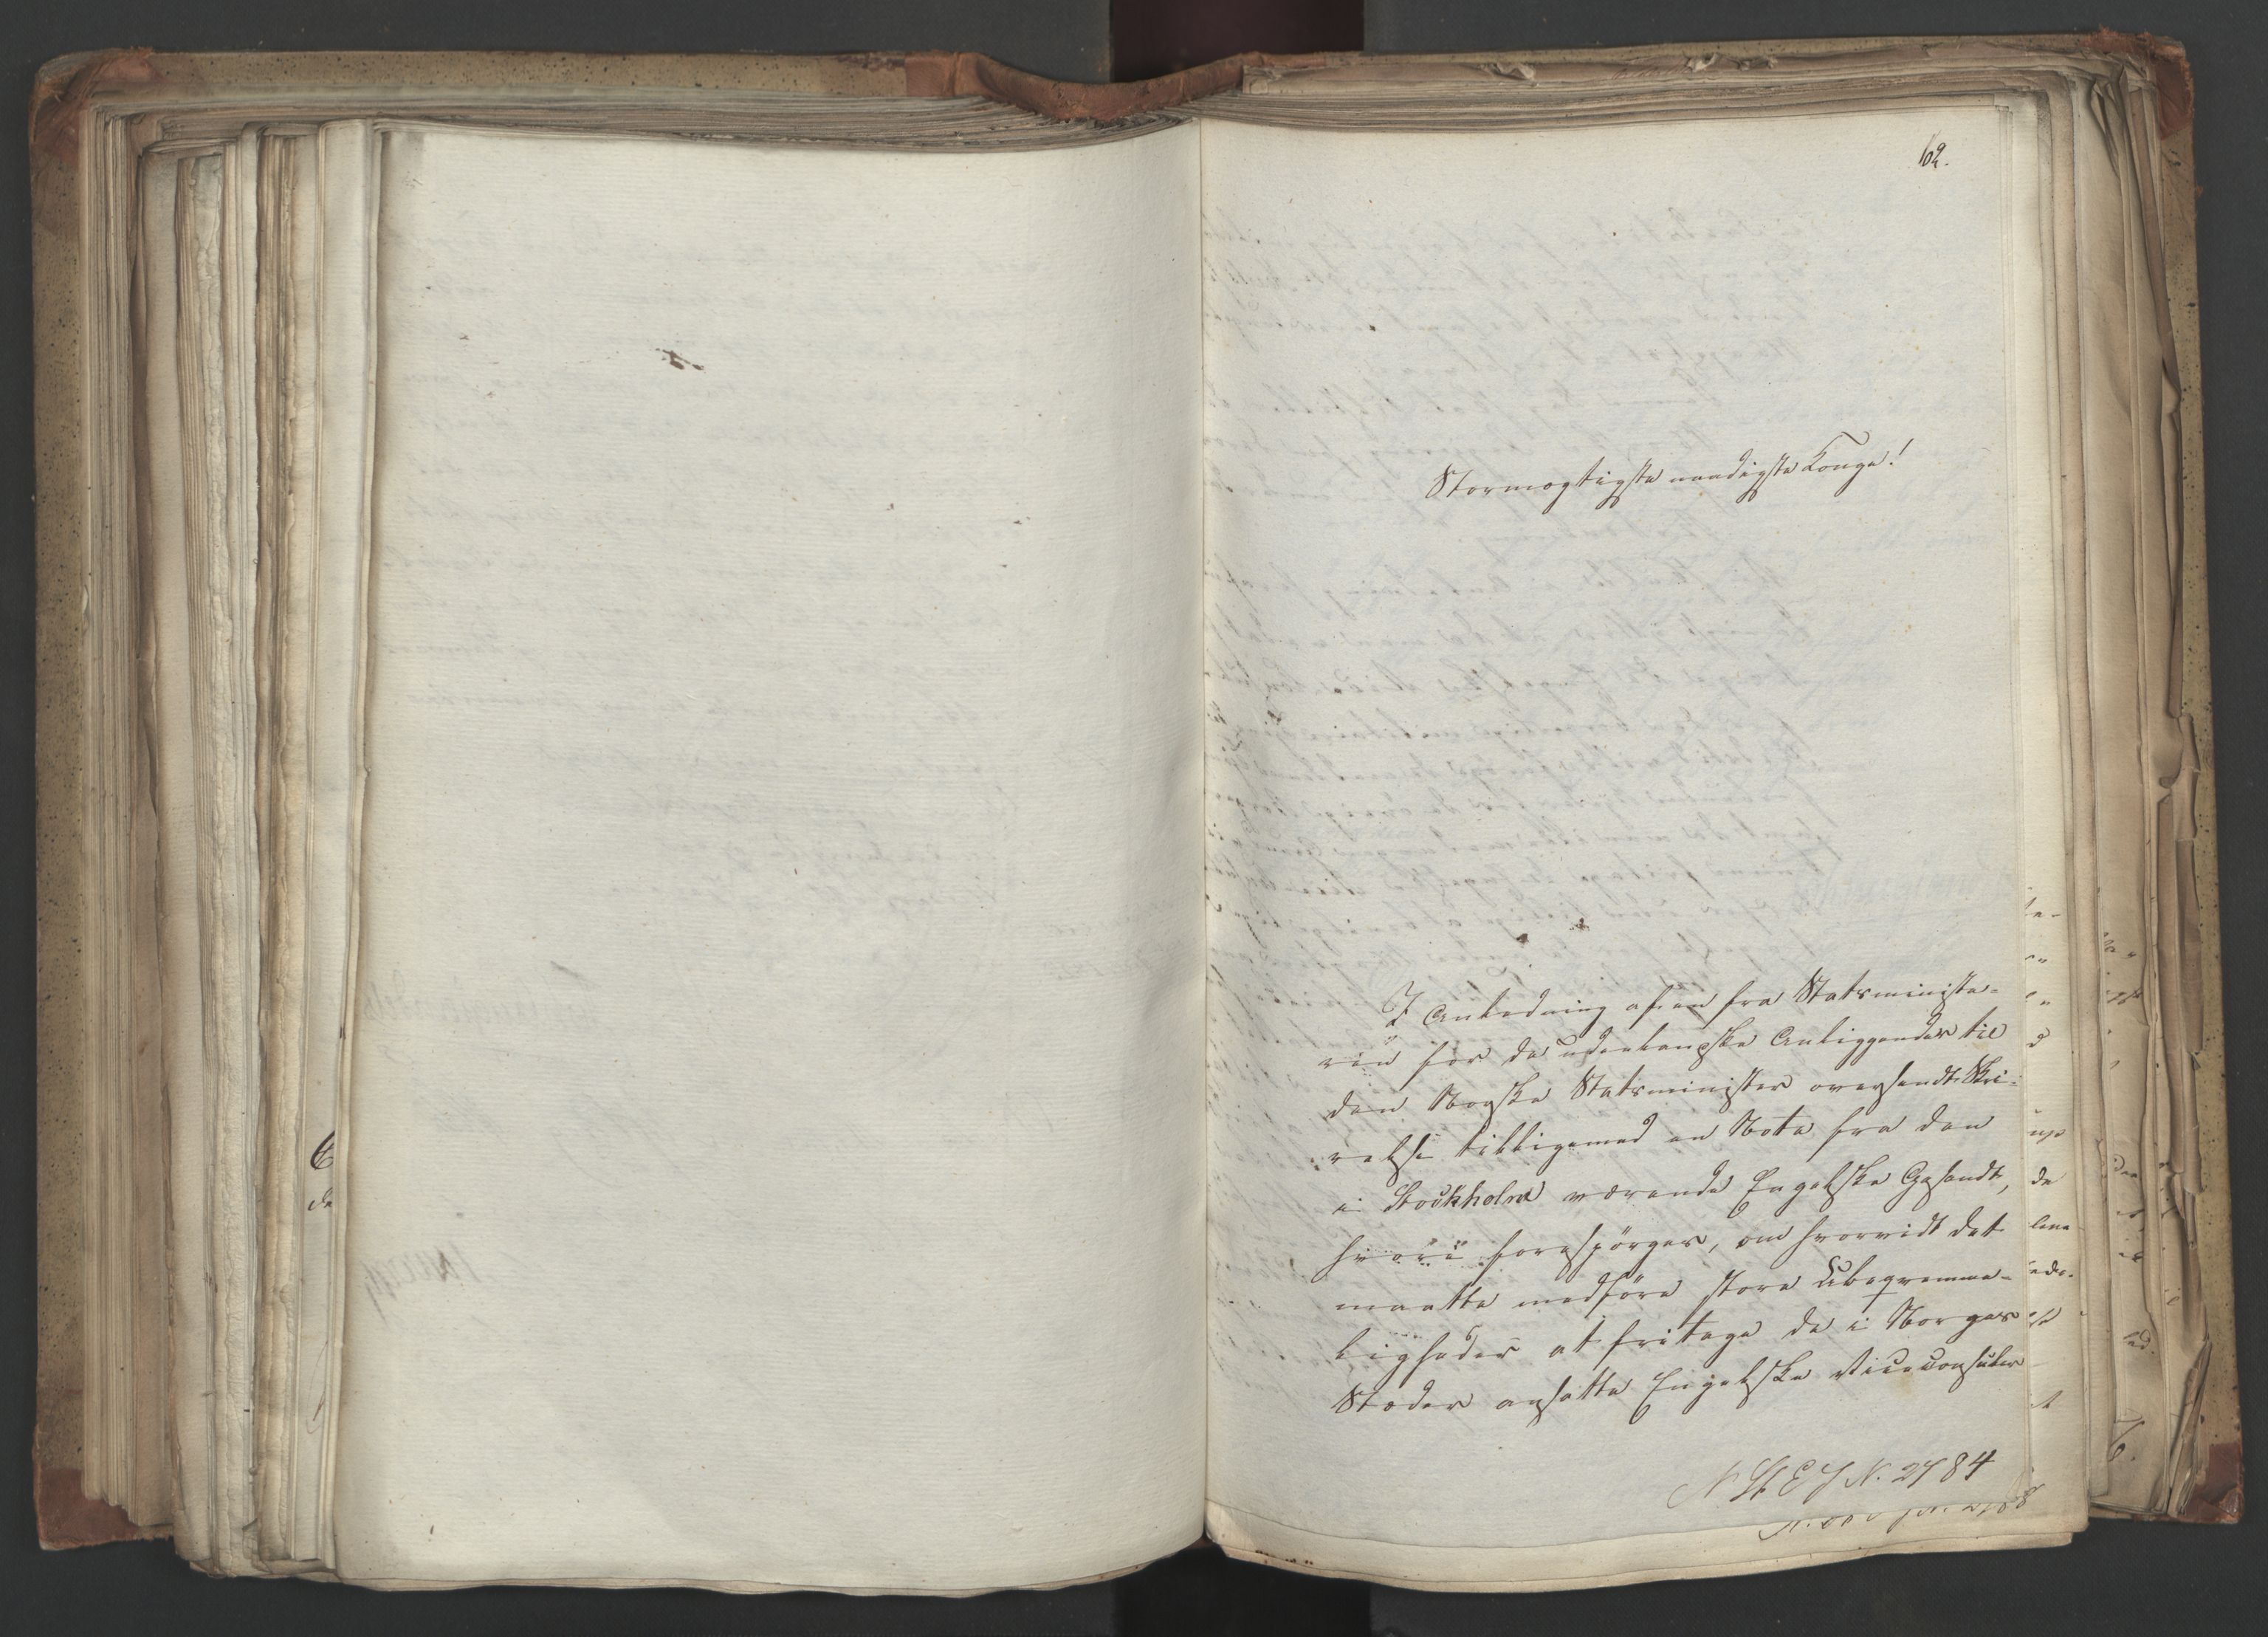 62.
Stormægtigste naadigste Konge!
I Anledning af en fra Statsministe-
ren for de udenlandske Anliggender til
den Norske Statsminister oversendt Skri-
velse tilligemed en Note fra den
i Stockholm værende Engelske Gesandt,
hvori forespørges, om hvorvidt det
maatte medføre store Ubeqvemme-
ligheder at fritage de i Norges
Stæder ansatte Engelske Viceconsuler
N. St. E. J. N. 2784